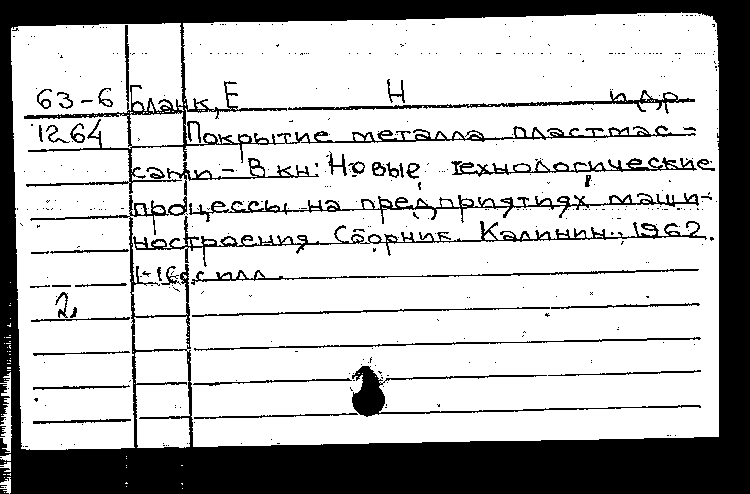 63-6 Бланк, Е Н и др
1264 Покрытие металла пластмас=
сами - В кн: Новые технологические
процессы на предприятиях маши-
ностроения. Сборник. Калинин., 1962.
1-16с. с илл.
2,